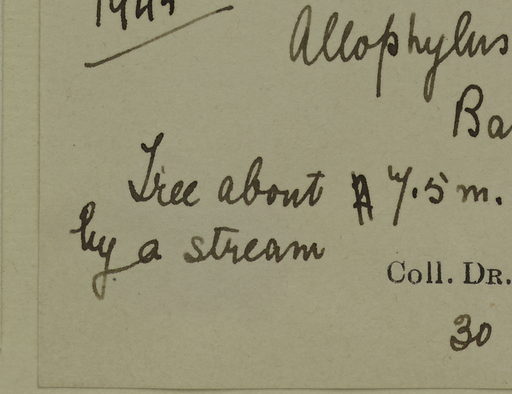 Allophylus
Ba
Tree about 7.5 m.
by a stream
Coll. DR.
30